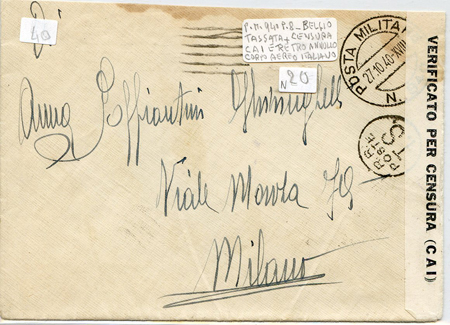 40
P.M. 940 P.8 - BELGIO
TASSATA + CENSURA
CAI E RETRO ANNULLO
CORPO AEREO ITALIANO
N 20
POSTA MILITAR
27.10.40-XVIII
N
R.R.
POSTE
T S
VERIFICATO PER CENSURA (CAI)
Anna Soffiantini
Viale Monza 79
Milano